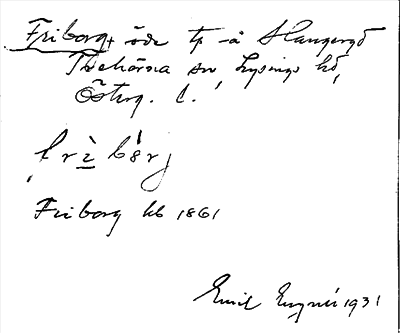 Friborg, öde tp å Slangeryd
Trehörna sn, Lysings hd,
Österg. l.
frìbö́rj
Friborg hb 1861
Emil 1931